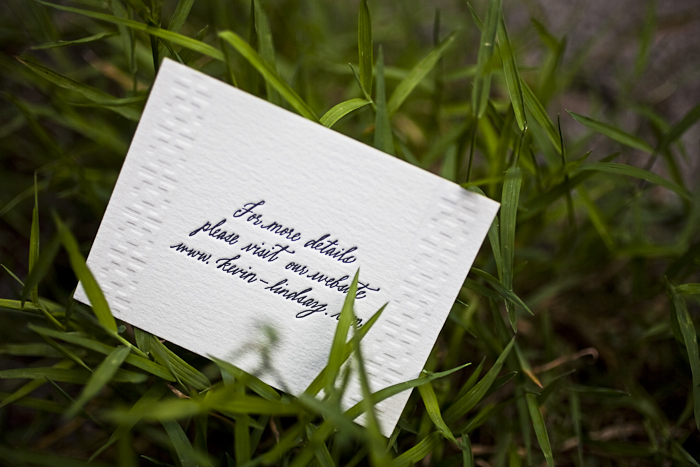 For more details
please visit our website
www.kevin-lindsay.